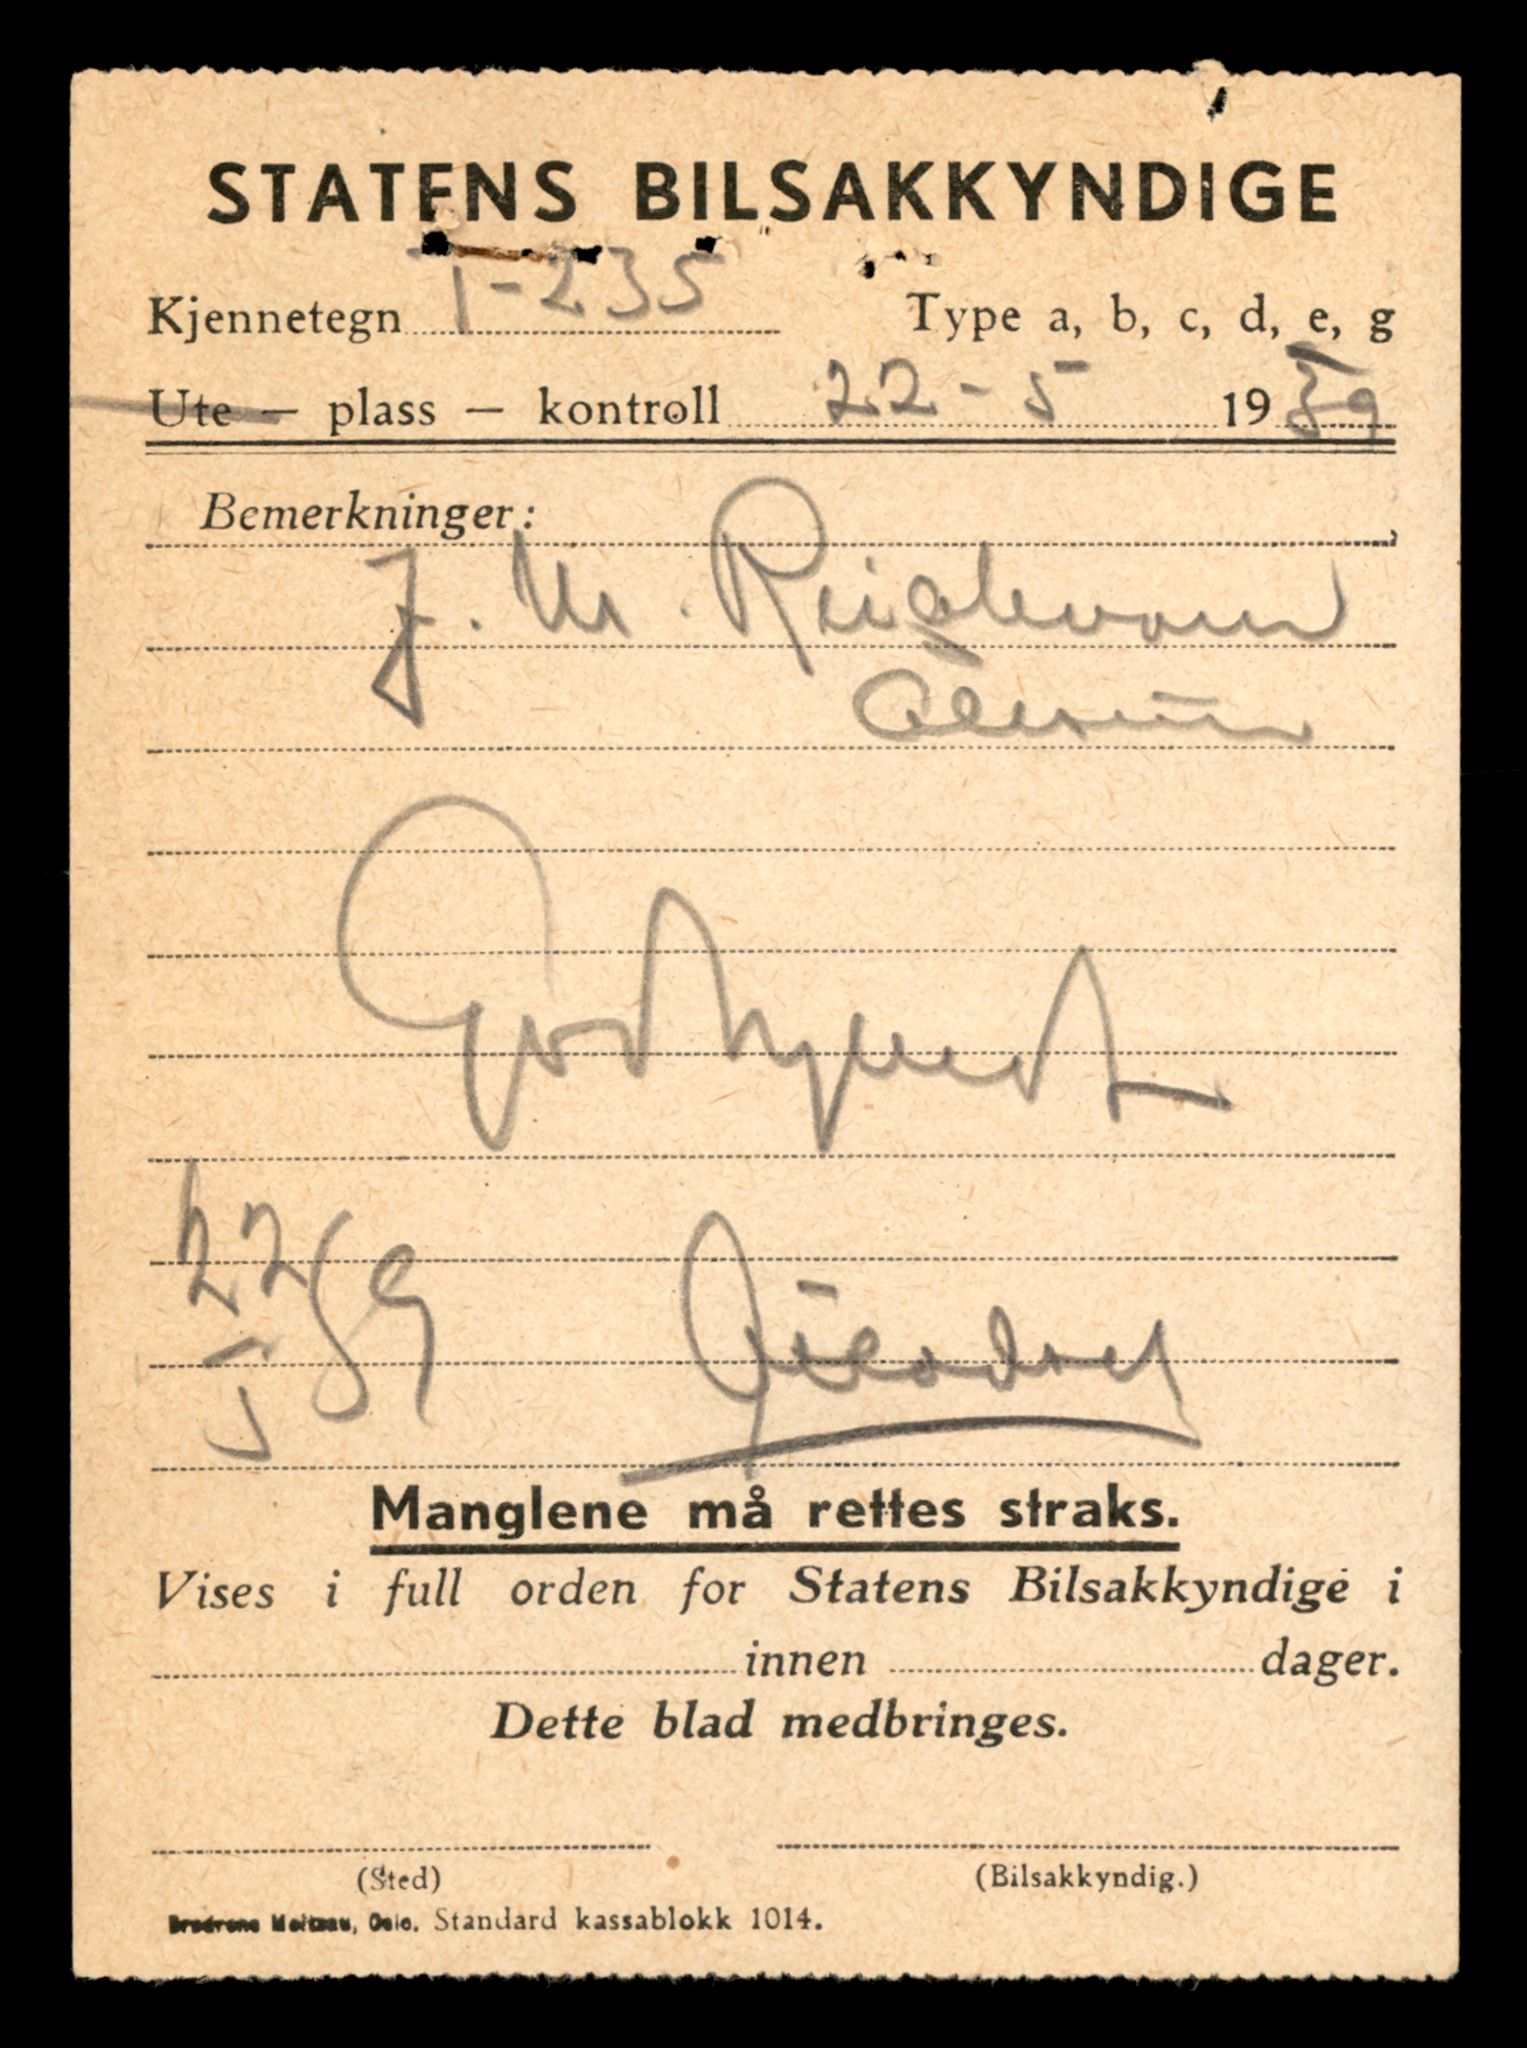 STATENS BILSAKKYNDIGE
Kjennetegn T-235 Type a, b, c, d, e, g
Ute — plass — kontroll 22-5 1959
Bemerkninger:
J. M.
Godkjent
22/5 59
Manglene må rettes straks.
Vises i full orden for Statens Bilsakkyndige i
innen dager.
Dette blad medbringes.
(Sted) (Bilsakkyndig.)
Oslo. Standard kassablokk 1014.